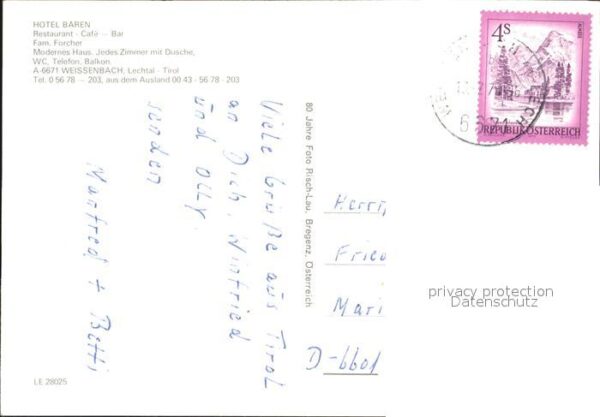 HOTEL BÄREN
Restaurant - Café - Bar
Fam. Forcher
Modernes Haus. Jedes Zimmer mit Dusche,
WC, Telefon, Balkon.
A-6671 WEISSENBACH, Lechtal - Tirol
Tel. 0 56 78 - 203, aus dem Ausland 00 43 - 56 78 - 203
Viele Grüße aus Tirol
an Dich, Winfried
und Olly.
senden
Manfred + Betti
80 Jahre Foto Risch-Lau, Bregenz, Österreich
4S
REPUBLIK ÖSTERREICH
LECH
6671
Herrn,
Fried
Mari
D-6601
privacy protection
Datenschutz
LE 28025